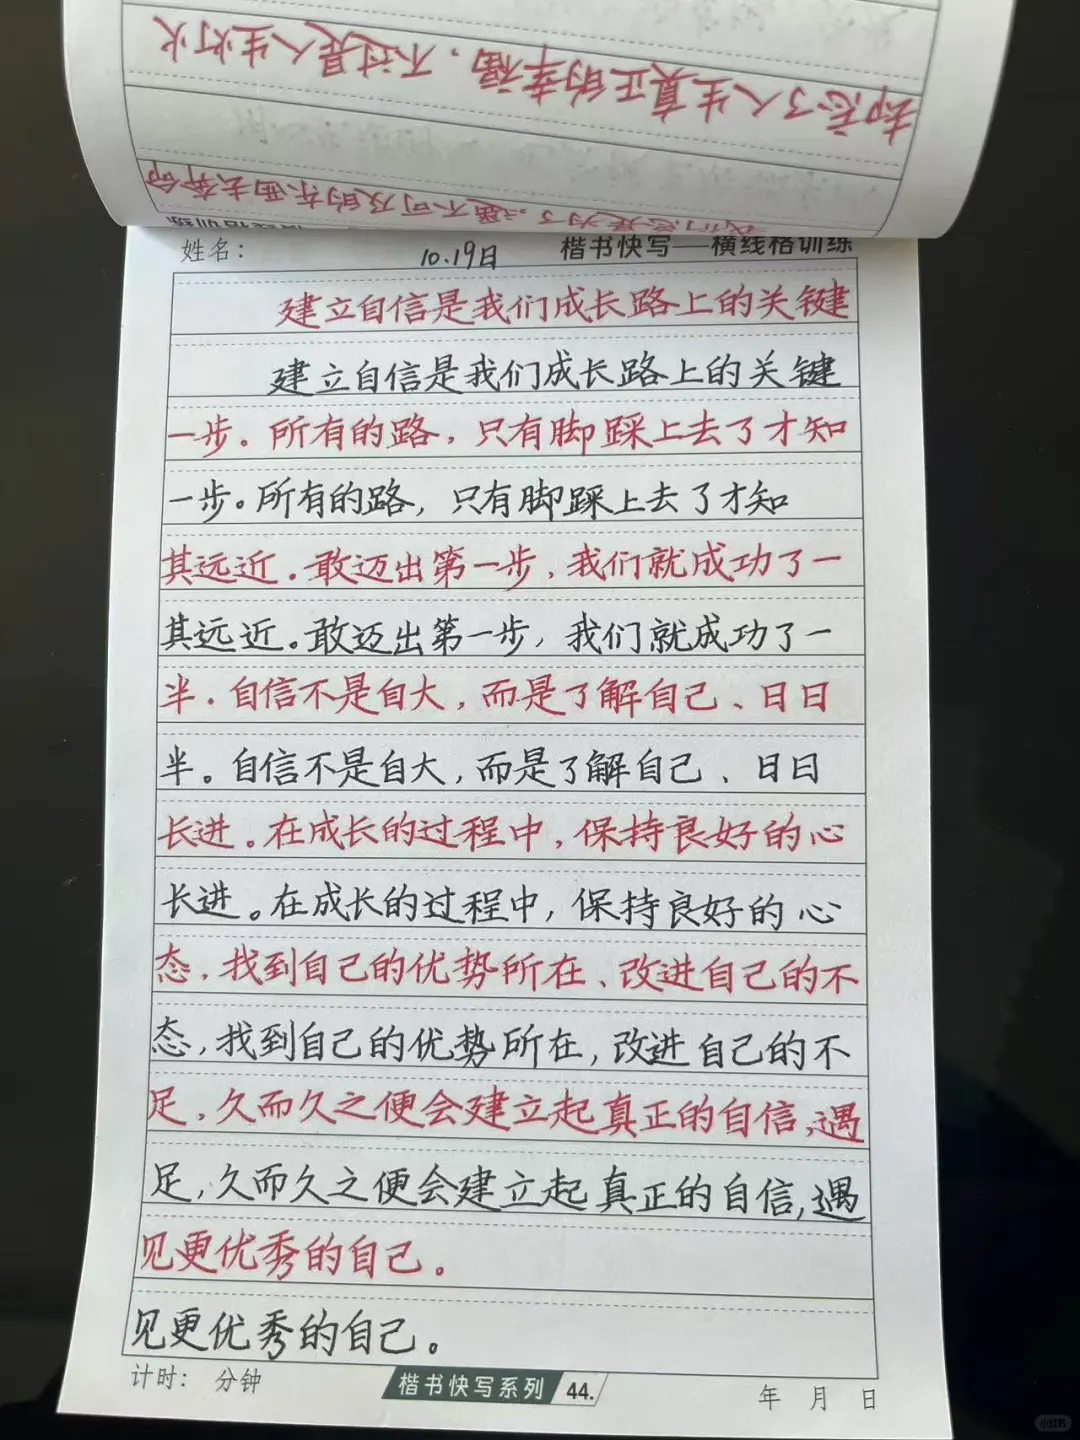 却忘了人生真正的幸福，不过是人生灯火
我们总是为了遥不可及的东西去奔命
姓名：
10.19日
楷书快写—横线格训练
建立自信是我们成长路上的关键
建立自信是我们成长路上的关键
一步。所有的路，只有脚踩上去了才知
一步。所有的路，只有脚踩上去了才知
其远近．敢迈出第一步，我们就成功了一
其远近。敢迈出第一步，我们就成功了一
半．自信不是自大，而是了解自己、日日
半。自信不是自大，而是了解自己、日日
长进。在成长的过程中，保持良好的心
长进。在成长的过程中，保持良好的心
态，找到自己的优势所在、改进自己的不
态，找到自己的优势所在，改进自己的不
足，久而久之便会建立起真正的自信，遇
足，久而久之便会建立起真正的自信，遇
见更优秀的自己。
见更优秀的自己。
计时： 分钟
楷书快写系列 44.
年 月 日